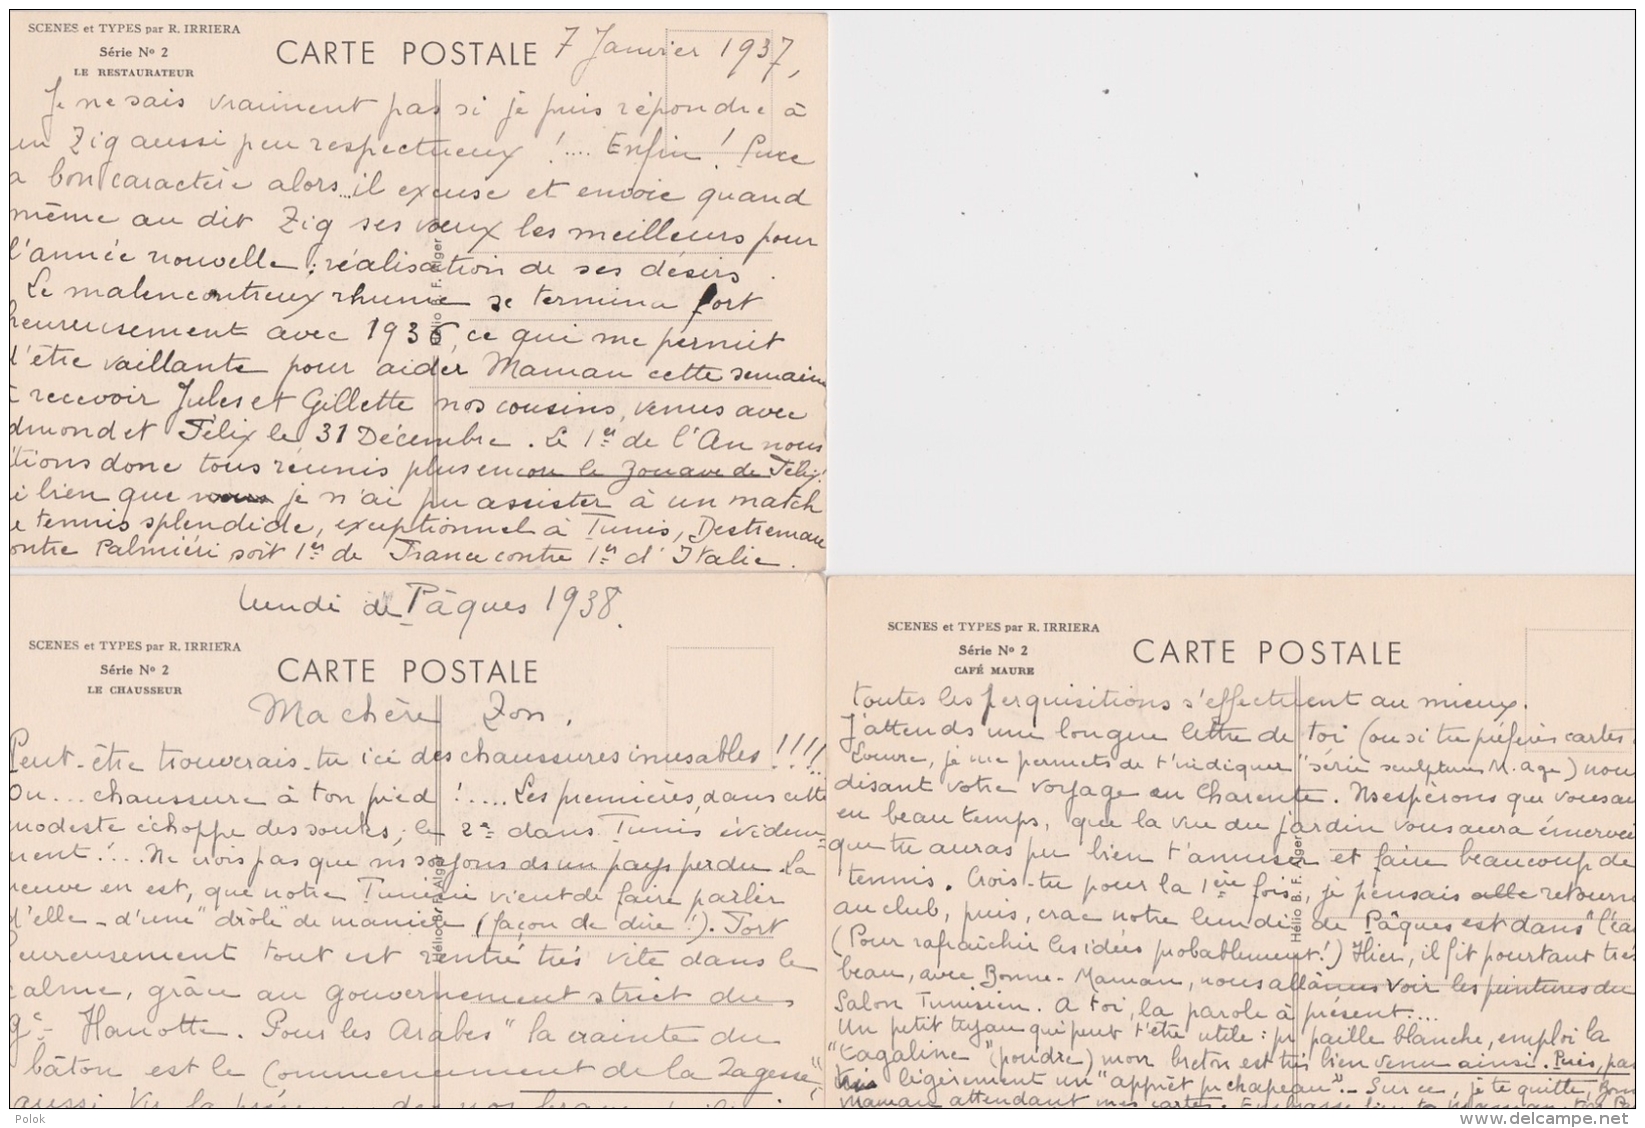 SCENES et TYPES par R. IRRIERA
Série Nº 2
LE RESTAURATEUR
CARTE POSTALE
7 Janvier 1937,
Je ne sais vraiment pas si je puis répondre à
un Zig aussi peu respectueux !.... Enfin !
a bon caractère alors... il excuse et envoie quand
même au dit Zig ses vœux les meilleurs pour
l'année nouvelle ; réalisation de ses désirs.
Le malencontreux rhume se termina fort
heureusement avec 1936, ce qui me permit
d'être vaillante pour aider Maman cette semaine
recevoir Jules et Gillette nos cousins, venus avec
dmond et Félix le 31 Décembre. Le 1er de l'An nous
tions donc tous réunis plus encore le Zouave de Félix!
i bien que je n'ai pu assister à un match
e tennis splendide, exceptionnel à Tunis, Destremau
ontre Palmiéri soit 1er de France contre 1er d'Italie.
Hélio B. F. Alger
lundi de Pâques 1938.
SCENES et TYPES par R. IRRIERA
Série Nº 2
LE CHAUSSEUR
CARTE POSTALE
Ma chère Zon,
Peut-être trouverais-tu ici des chaussures inusables !!!!
Ou... chaussure à ton pied !.... Les premières, dans cette
modeste échoppe des souks, le 2e dans Tunis évidem
ment !... Ne crois pas que ns soyons ds un pays perdu. La
reuve en est, que notre Tunisie vient de faire parler
d'elle - d'une "drôle" de manière (façon de dire !). Fort
eureusement tout est rentré très vite dans le
calme, grâce au gouvernement strict du
Gal Hanotte. Pour les Arabes "la crainte du
bâton est le commencement de la sagesse",
aussi, vu la
Hélio B. F. Alger
SCENES et TYPES par R. IRRIERA
Série Nº 2
CAFÉ MAURE
CARTE POSTALE
toutes les perquisitions s'effectuent au mieux.
J'attends une longue lettre de toi (ou si tu préfères cartes
Louvre, je me permets de t'indiquer "série sculptures M. age) nous
disant votre voyage en Charente. Ns espérons que vous au
eu beau temps, que la vue du jardin vous aura émerveil
que tu auras pu bien t'amuser et faire beaucoup de
tennis. Crois-tu pour la 1ère fois, je pensais retourne
au club, puis, crac notre lundi de Pâques est dans "l'eau
(Pour rafraîchir les idées probablement !) Hier, il fit pourtant très
beau, avec Bonne-Maman, nous allâmes voir les peintures du
Salon Tunisien. A toi, la parole à présent....
Un petit tuyau qui peut t'être utile : pr paille blanche, emploi la
"tagaline" (poudre) mon breton est très bien venu ainsi. Puis, pas
légèrement un "apprêt pr chapeau". - Sur ce, je te quitte, Bon
maman attendant mes cartes.
Hélio B. F. Alger
Polok
www.delcampe.net